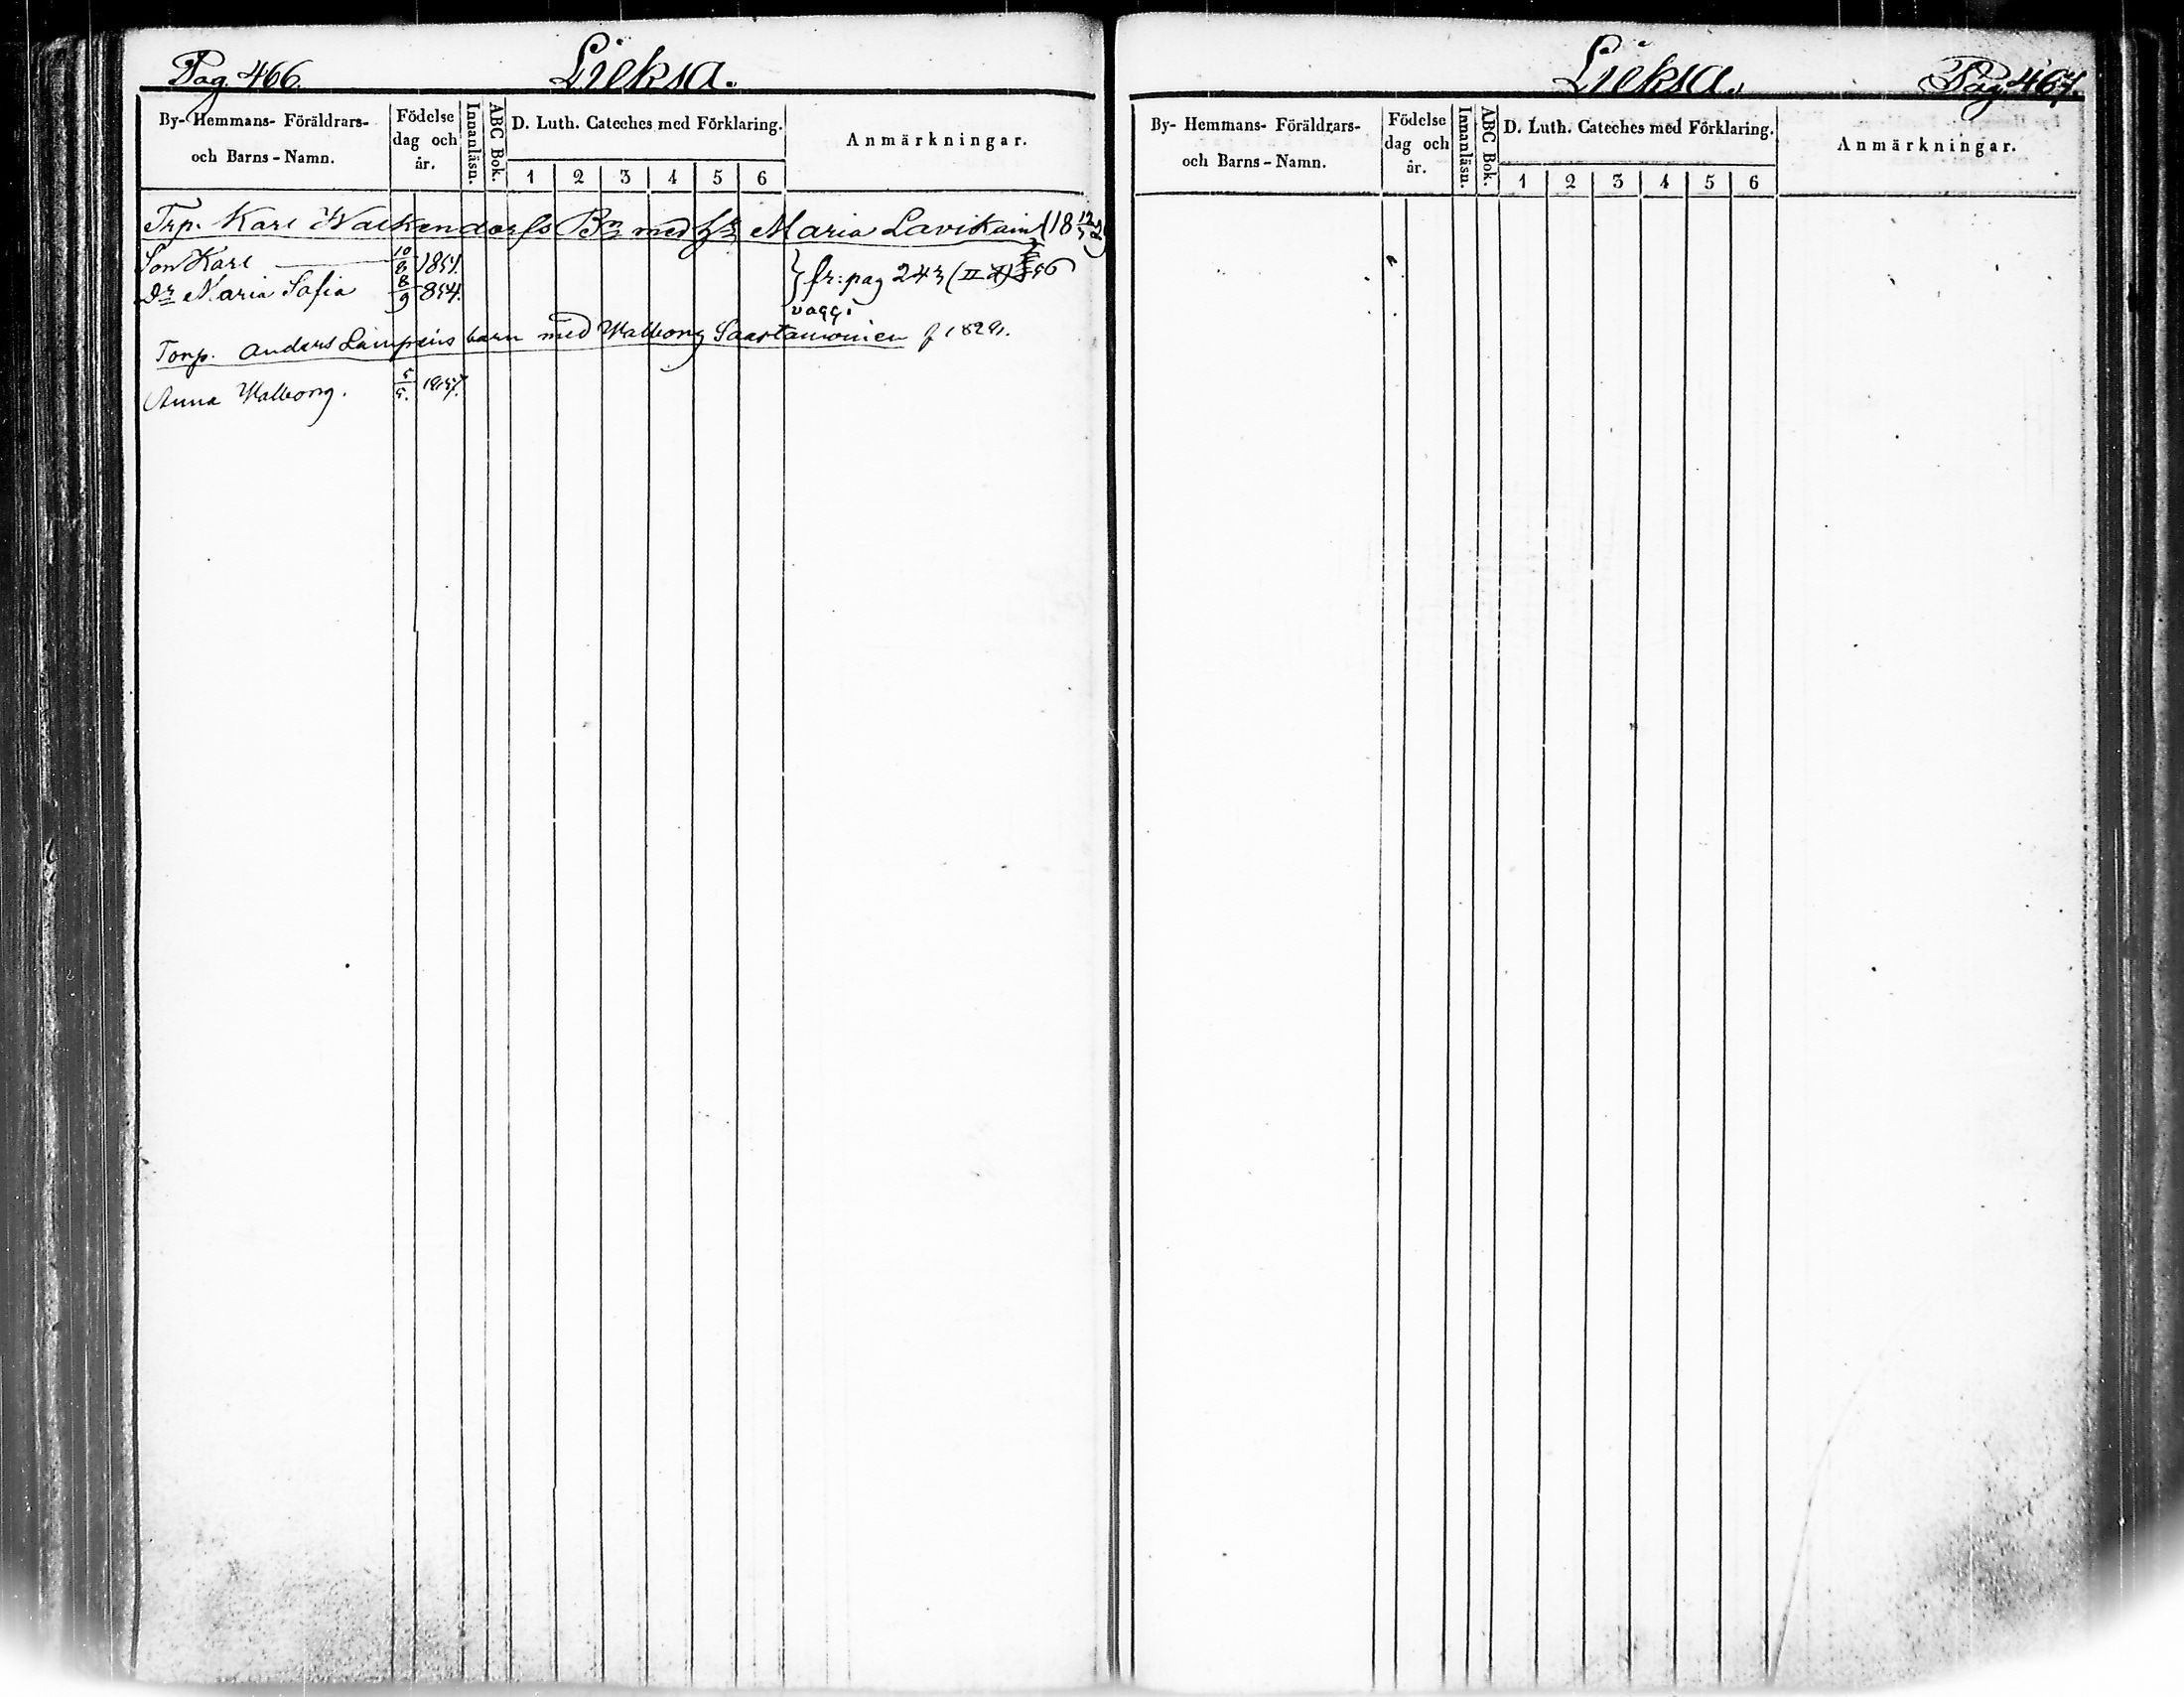 Pag. 466.
Lieksa.
By- Hemmans- Föräldrars-
och Barns - Namn.
Födelse
dag och
år.
Innanläsn.
ABC Bok.
D. Luth. Cateches med Förklaring.
1 2 3 4 5 6
Anmärkningar.
Trp. Karl Walkendorfs Bn med h. Maria Lavikain (18
Son Karl 10/8 1851.
Dr Maria Sofia 8/9 854.
} fr: pag 243 (II 56
vacc.
Torp. Anders Laimpeins barn med Walborg Saastamoinen f 1829.
Anna Walborg. 5/5. 1857.
Lieksa.
Pag. 467.
By- Hemmans- Föräldrars-
och Barns - Namn.
Födelse
dag och
år.
Innanläsn.
ABC Bok.
D. Luth. Cateches med Förklaring.
1 2 3 4 5 6
Anmärkningar.